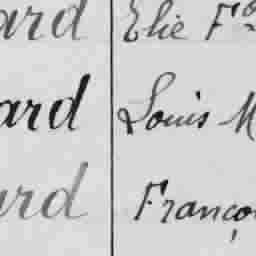 ard Elie Fo
ard Louis M
ard Franço